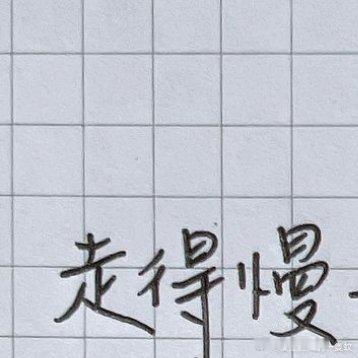 走得慢